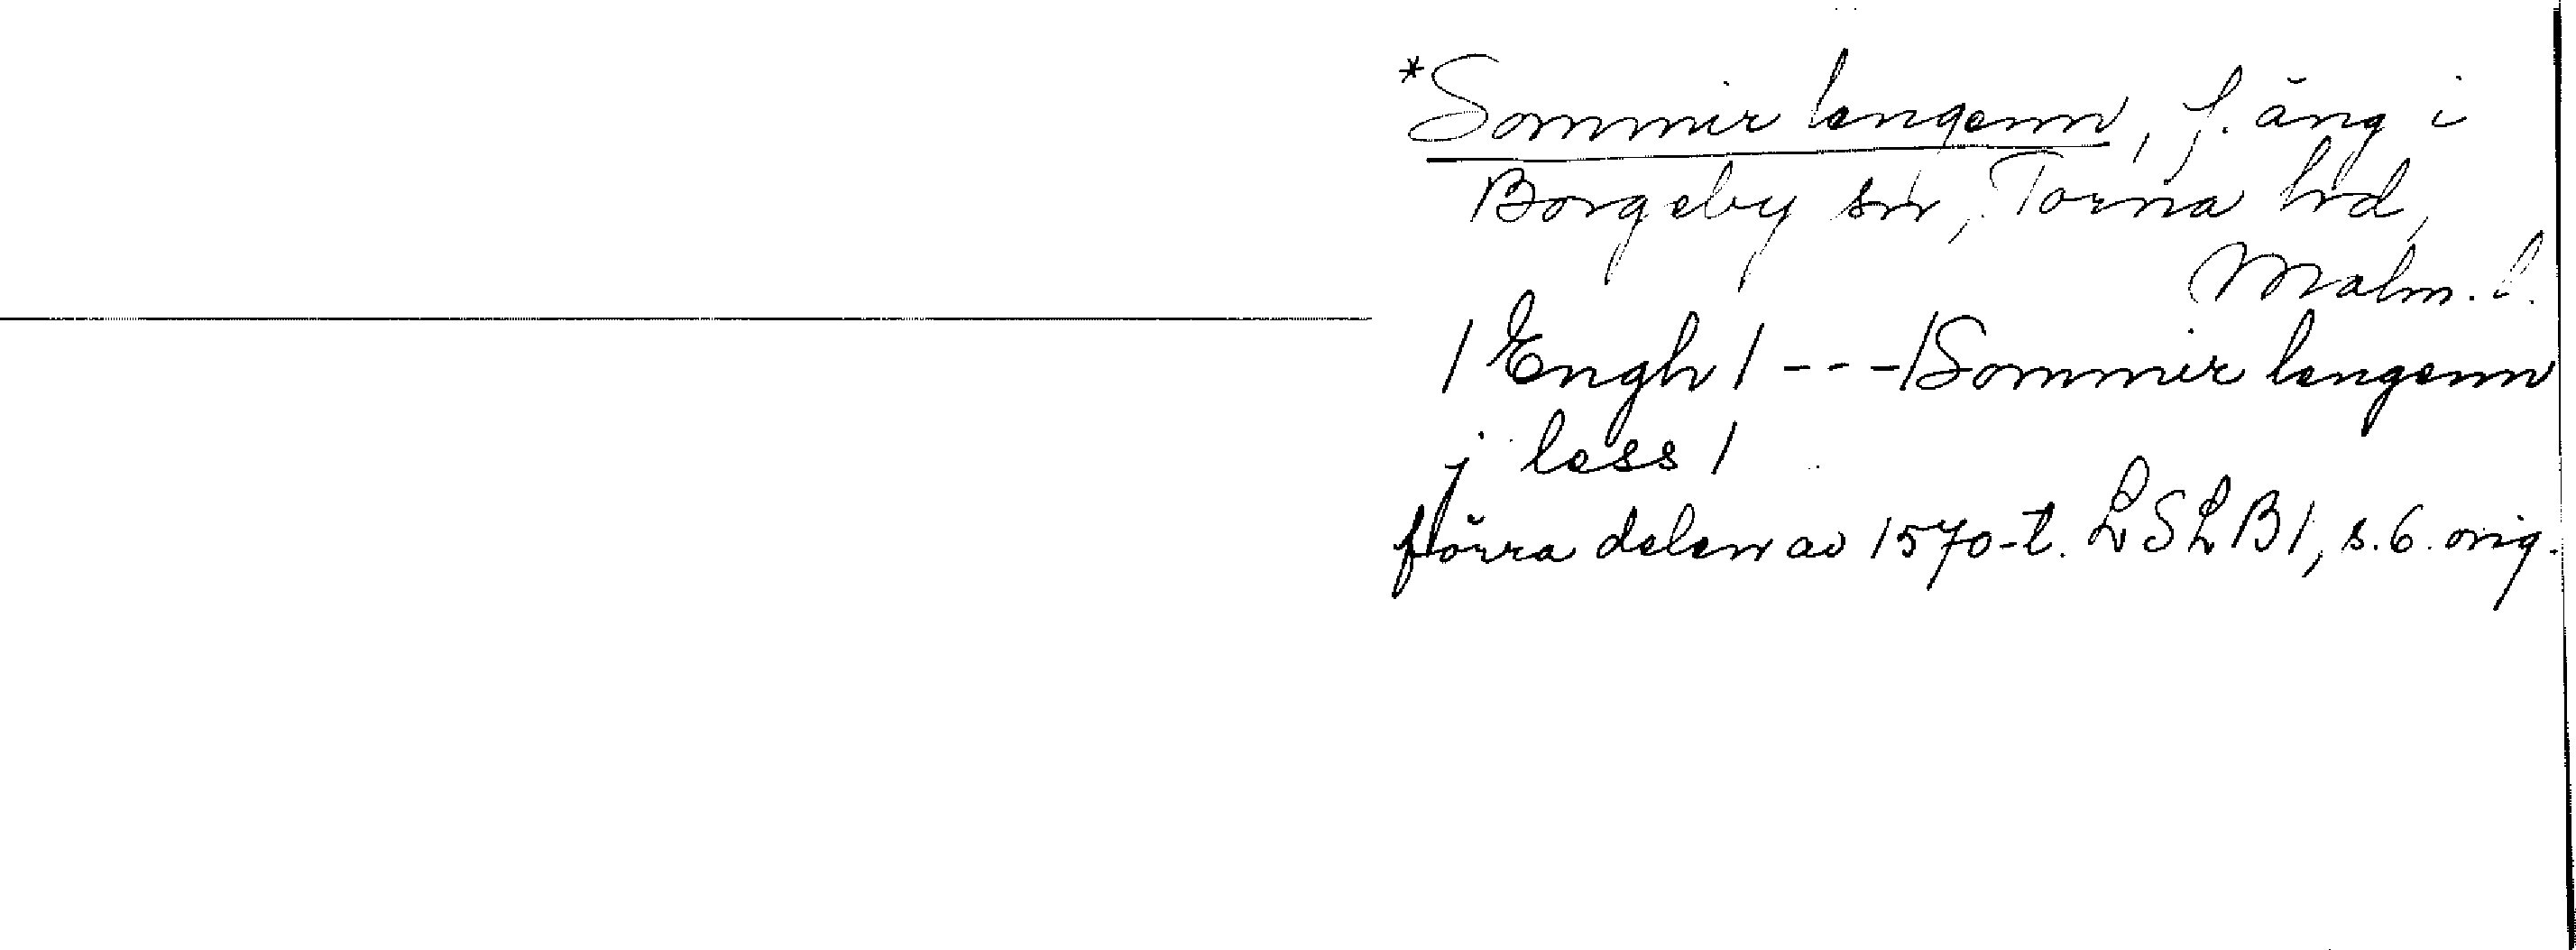 *Sommir lengenn, f. äng i
Borgeby sn, Torna hd,
Malm. l.
/ Engh / - - - / Sommir lengenn
j less /
förra delen av 1570-t. LSLB 1, s. 6. orig.